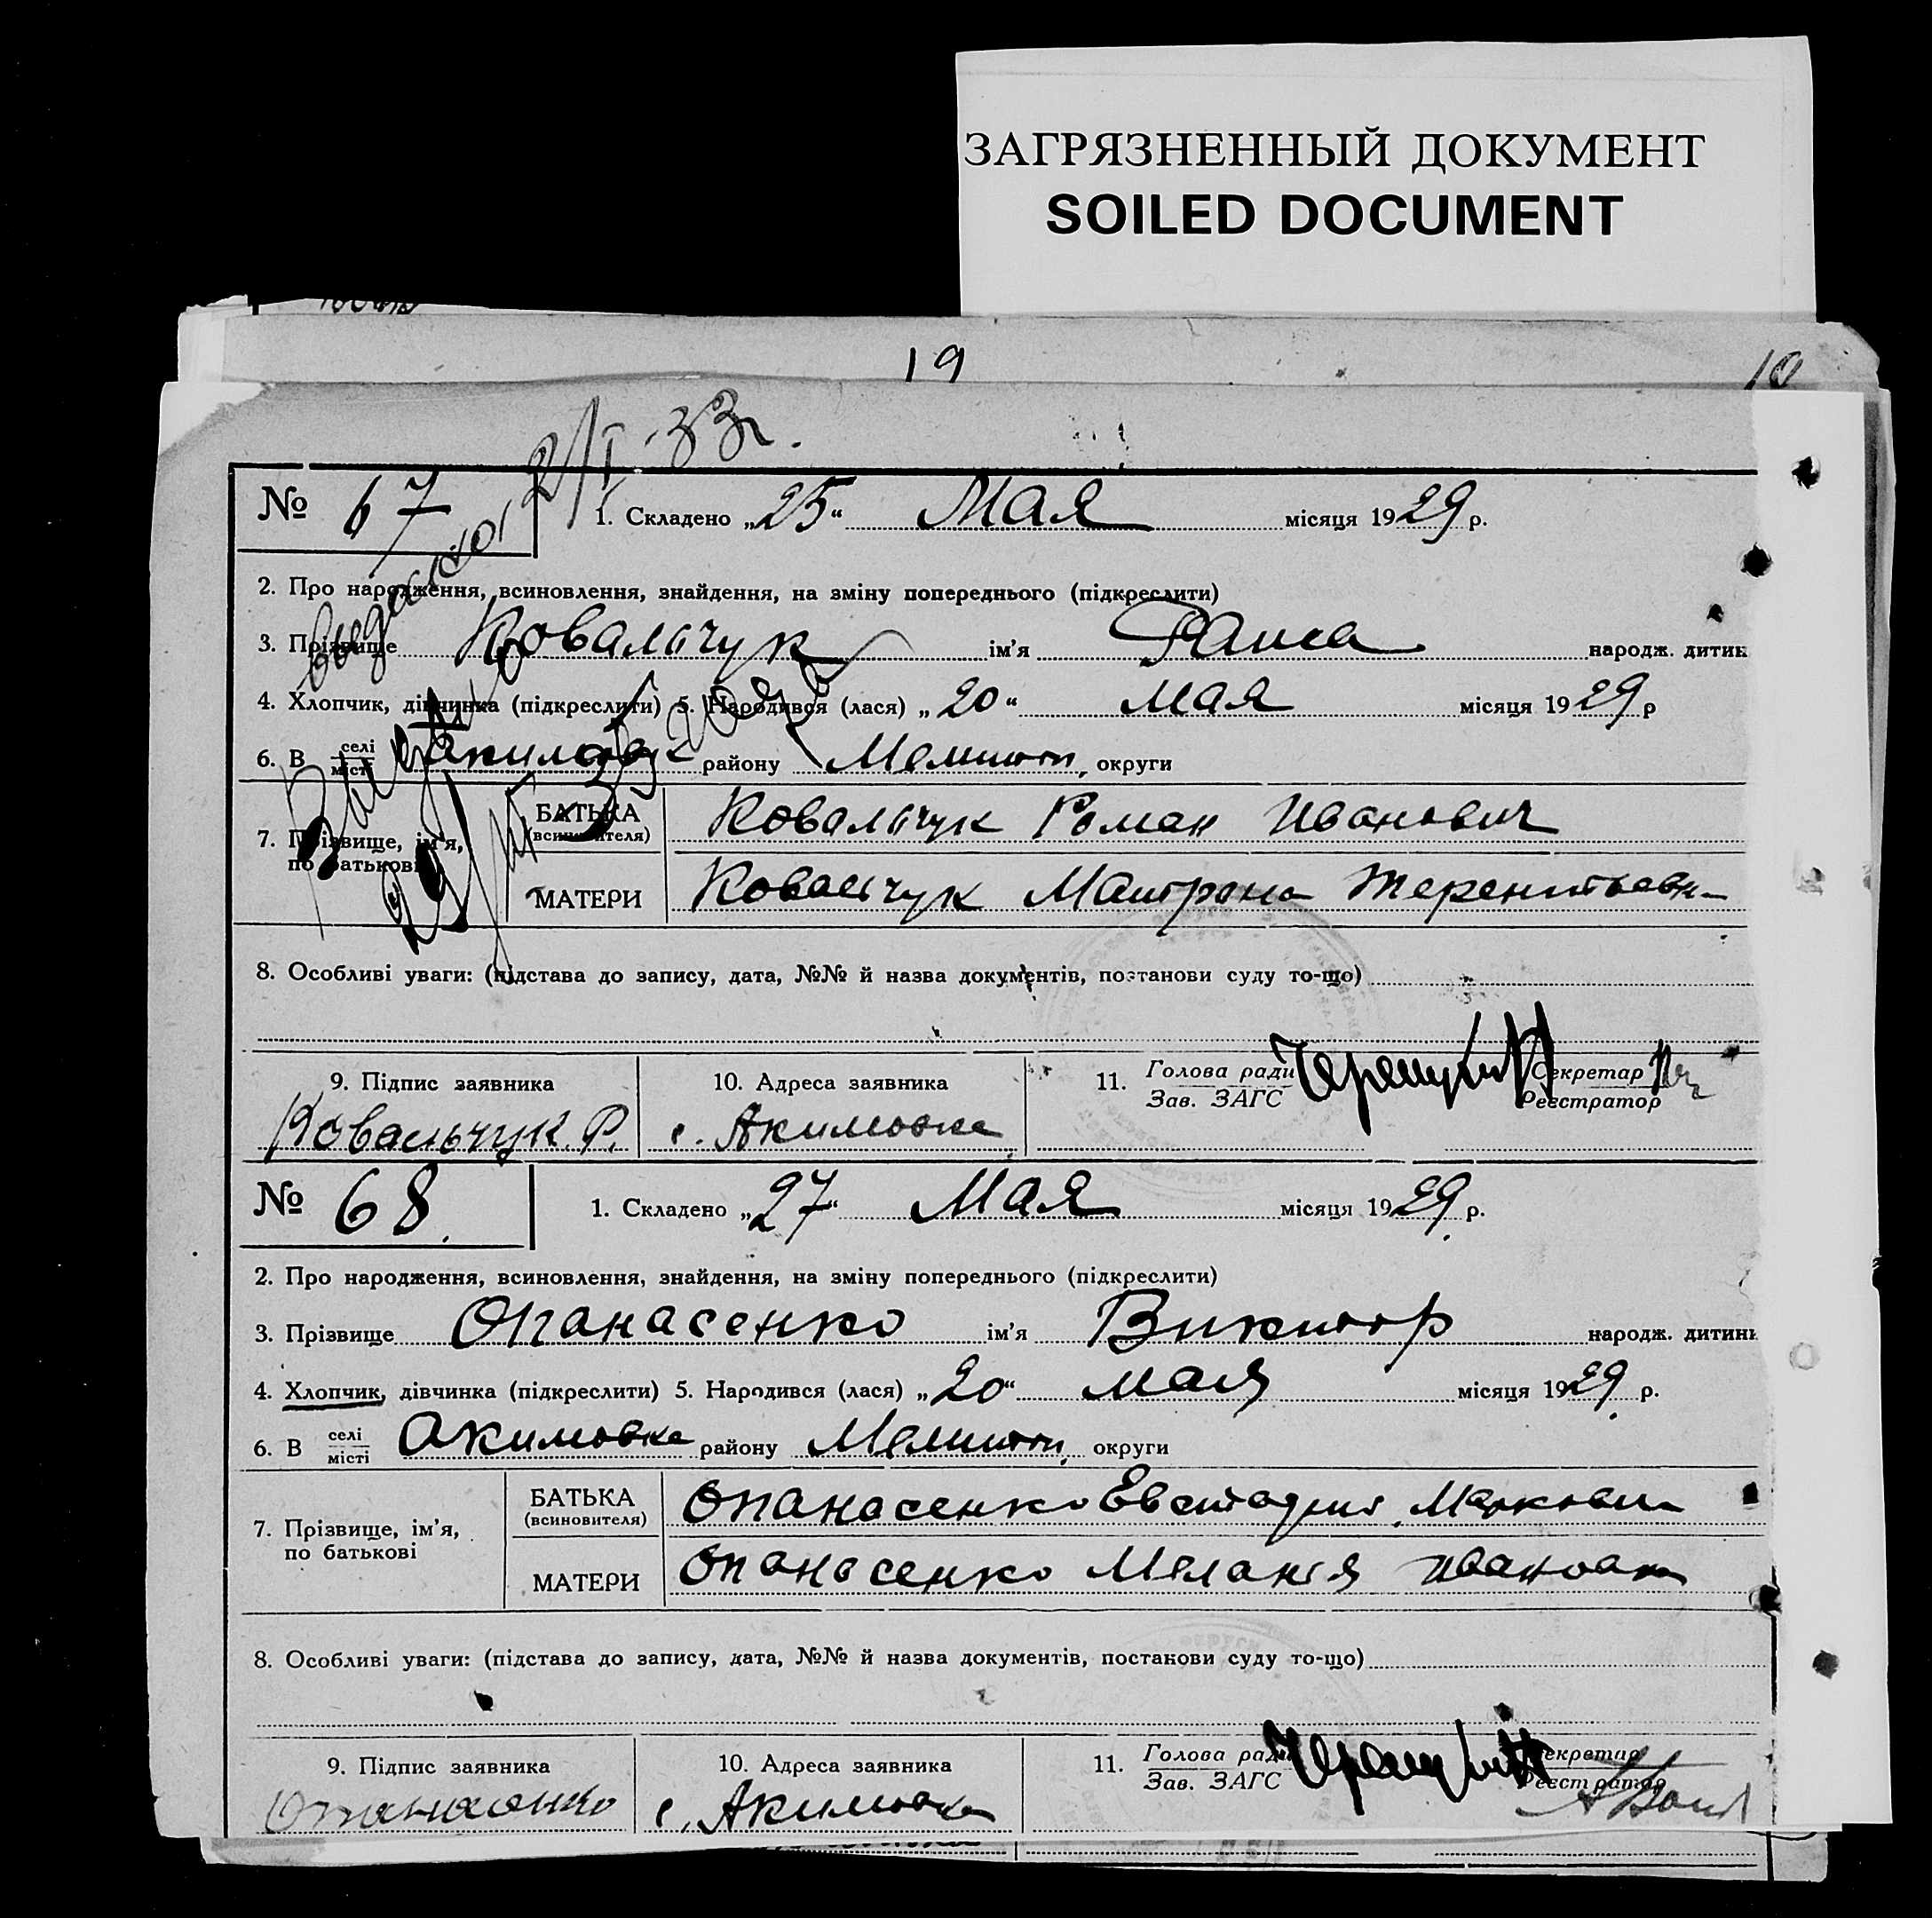 ЗАГРЯЗНЕННЫЙ ДОКУМЕНТ
SOILED DOCUMENT
19
10
2/I-33г.
№ 67
1. Складено „25“ Мая місяця 1929 р.
2. Про народження, всиновлення, знайдення, на зміну попереднього (підкреслити)
3. Прізвище Ковальчук ім'я Раиса народж. дитин
4. Хлопчик, дівчинка (підкреслити) 5. Народився (лася) „20“ Мая місяця 1929 р
6. В селі місті Акимовк району Мелитоп. округи
7. Прізвище, ім'я, по батькові
БАТЬКА (всиновителя) Ковальчук Роман Иванович
МАТЕРИ Ковальчук Матрена Терентьевн
8. Особливі уваги: (підстава до запису, дата, №№ й назва документів, постанови суду то-що)
9. Підпис заявника
10. Адреса заявника
11. Голова ради Зав. ЗАГС
Секретар Реєстратор
Ковальчук Р.
с. Акимовка
№ 68
1. Складено „27“ Мая місяця 1929 р.
2. Про народження, всиновлення, знайдення, на зміну попереднього (підкреслити)
3. Прізвище Опанасенко ім'я Виктор народж. дитини
4. Хлопчик, дівчинка (підкреслити) 5. Народився (лася) „20“ мая місяця 1929 р.
6. В селі місті Акимовка району Мелитоп. округи
7. Прізвище, ім'я, по батькові
БАТЬКА (всиновителя) Опанасенко Маркович
МАТЕРИ Опанасенко Мелания Ивановна
8. Особливі уваги: (підстава до запису, дата, №№ й назва документів, постанови суду то-що)
9. Підпис заявника
10. Адреса заявника
11. Голова ради Зав. ЗАГС
Секретар Реєстратор
с. Акимовка